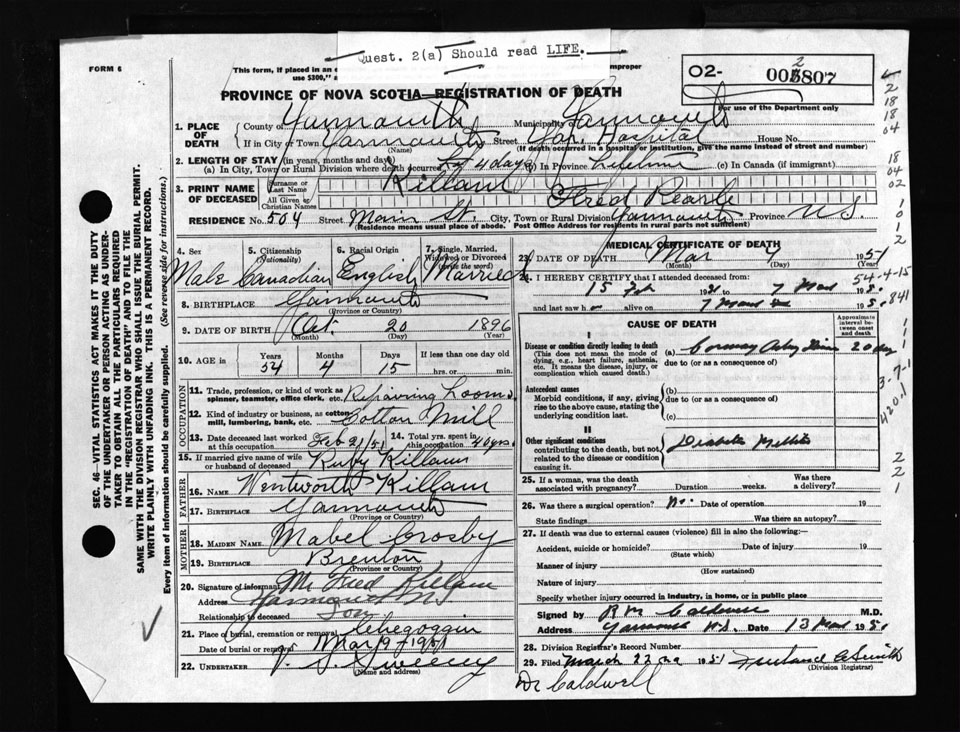 Quest. 2(a) Should read LIFE.
FORM 6
This form, if placed in an e
improper
use $300," inc
O2- 005807
2
For use of the Department only
PROVINCE OF NOVA SCOTIA—REGISTRATION OF DEATH
1. PLACE OF DEATH { County of Yarmouth Municipality Yarmouth
If in City or Town Yarmouth Street Yar. Hospital House No.
(Name) (If death occurred in a hospital or institution, give the name instead of street and number)
2. LENGTH OF STAY (in years, months and days)
(a) In City, Town or Rural Division where death occurred 4 days (b) In Province Lifetime (c) In Canada (if immigrant)
3. PRINT NAME OF DECEASED { Surname or Last Name Killam
All Given or Christian Names Fred Pearle
RESIDENCE No. 504 Street Main St. City, Town or Rural Division Yarmouth Province N.S.
(Residence means usual place of abode. Post Office Address for residents in rural parts not sufficient)
4. Sex 5. Citizenship (Nationality) 6. Racial Origin 7. Single, Married, Widowed or Divorced (write the word)
Male Canadian English Married
8. BIRTHPLACE Yarmouth
(Province or Country)
9. DATE OF BIRTH Oct. 20 1896
(Month) (Day)
10. AGE in Years Months Days If less than one day old
54 4 15 hrs. or min.
OCCUPATION
11. Trade, profession, or kind of work as spinner, teamster, office clerk, etc. Repairing Looms
12. Kind of industry or business, as cotton mill, lumbering, bank, etc. Cotton Mill
13. Date deceased last worked at this occupation Feb 21/51 14. Total yrs. spent in this occupation 40 yrs.
15. If married give name of wife or husband of deceased Ruby Killam
FATHER
16. NAME Wentworth Killam
17. BIRTHPLACE Yarmouth
(Province or Country)
MOTHER
18. MAIDEN NAME Mabel Crosby
19. BIRTHPLACE Brenton
(Province or Country)
20. Signature of informant Mr Fred Killam
Address Yarmouth N S
Relationship to deceased Son
21. Place of burial, cremation or removal Chegoggin
Date of burial or removal Mar 9-1951
22. UNDERTAKER V. S. Sweeny
(Name and address)
MEDICAL CERTIFICATE OF DEATH
23. DATE OF DEATH Mar 7 1951
(Month) (Day) (Year)
24. I HEREBY CERTIFY that I attended deceased from:
15 Feb 1951 to 7 Mar 1951
and last saw h alive on 7 Mar 1951
CAUSE OF DEATH
Approximate interval between onset and death
I
Disease or condition directly leading to death
(This does not mean the mode of dying, e.g., heart failure, asthenia, etc. It means the disease, injury, or complication which caused death.)
(a) 20 day
due to (or as a consequence of)
Antecedent causes
Morbid conditions, if any, giving rise to the above cause, stating the underlying condition last.
(b)
due to (or as a consequence of)
(c)
II
Other significant conditions
contributing to the death, but not related to the disease or condition causing it.
Diabetes Mellitus
25. If a woman, was the death associated with pregnancy? Duration weeks. Was there a delivery?
26. Was there a surgical operation? No. Date of operation 19
State findings Was there an autopsy?
27. If death was due to external causes (violence) fill in also the following:
Accident, suicide or homicide? Date of injury 19
(State which)
Manner of injury
(How sustained)
Nature of injury
Specify whether injury occurred in industry, in home, or in public place
Signed by R M Caldwell M.D.
Address Yarmouth N.S. Date 13 Mar 1951
28. Division Registrar's Record Number
29. Filed March 22nd 1951 Smith
(Division Registrar)
Dr Caldwell
2
18
18
04
18
04
02
1
0
1
2
54-4-15
841
3-7-1
420.1
2
2
1
SEC. 46—VITAL STATISTICS ACT MAKES IT THE DUTY
OF THE UNDERTAKER OR PERSON ACTING AS UNDER-
TAKER TO OBTAIN ALL THE PARTICULARS REQUIRED
IN THE "REGISTRATION OF DEATH" AND TO FILE THE
SAME WITH THE DIVISION REGISTRAR WHO SHALL ISSUE THE BURIAL PERMIT.
WRITE PLAINLY WITH UNFADING INK. THIS IS A PERMANENT RECORD.
Every item of information should be carefully supplied. (See reverse side for instructions.)